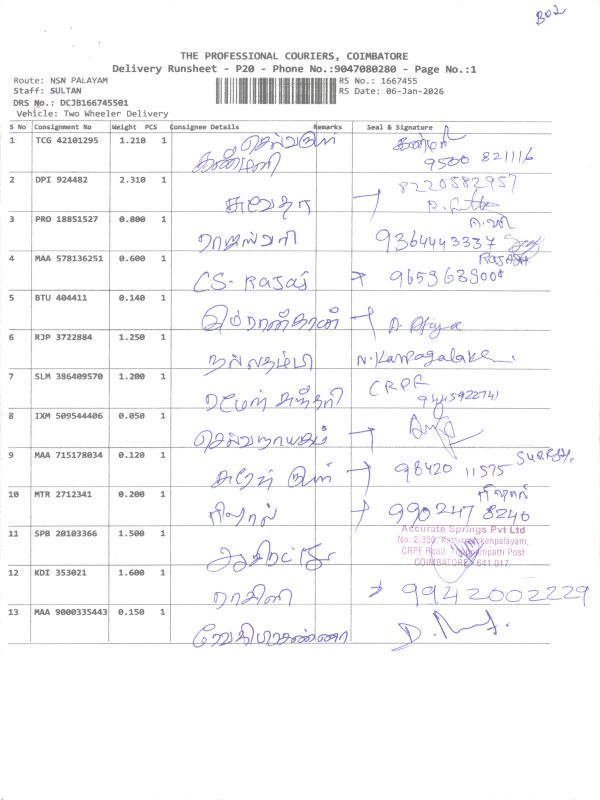 B02
THE PROFESSIONAL COURIERS, COIMBATORE
Delivery Runsheet - P20 - Phone No.:9047080280 - Page No.:1
Route: NSN PALAYAM RS No.: 1667455
Staff: SULTAN RS Date: 06-Jan-2026
DRS No.: DCJB166745501
Vehicle: Two Wheeler Delivery
S No Consignment No Weight PCS Consignee Details Remarks Seal & Signature
1 TCG 42101295 1.210 1
9500 821116
2 DPI 924482 2.310 1 சுவேதா 8220582957
3 PRO 18851527 0.800 1 ராஜேஸ்வரி 9364443337
4 MAA 578136251 0.600 1 CS- Rajaj RAJASH
9659639008
5 BTU 404411 0.140 1 இம்ரான்கான் A. Afiya
6 RJP 3722884 1.250 1 நல்லதம்பி
7 SLM 386409570 1.200 1 CRPF
9445922741
8 IXM 509544406 0.050 1 செல்வநாயகம்
9 MAA 715178034 0.120 1 98420 11575 SURESH.
10 MTR 2712341 0.200 1 பிலால் பிலால்
990247 8240
11 SPB 20103366 1.500 1 Accurate Springs Pvt Ltd
No. 2/320,
CRPF Road, Post
COIMBATORE - 641 017
12 KDI 353021 1.600 1 ராகினி 9942002229
13 MAA 9000335443 0.150 1